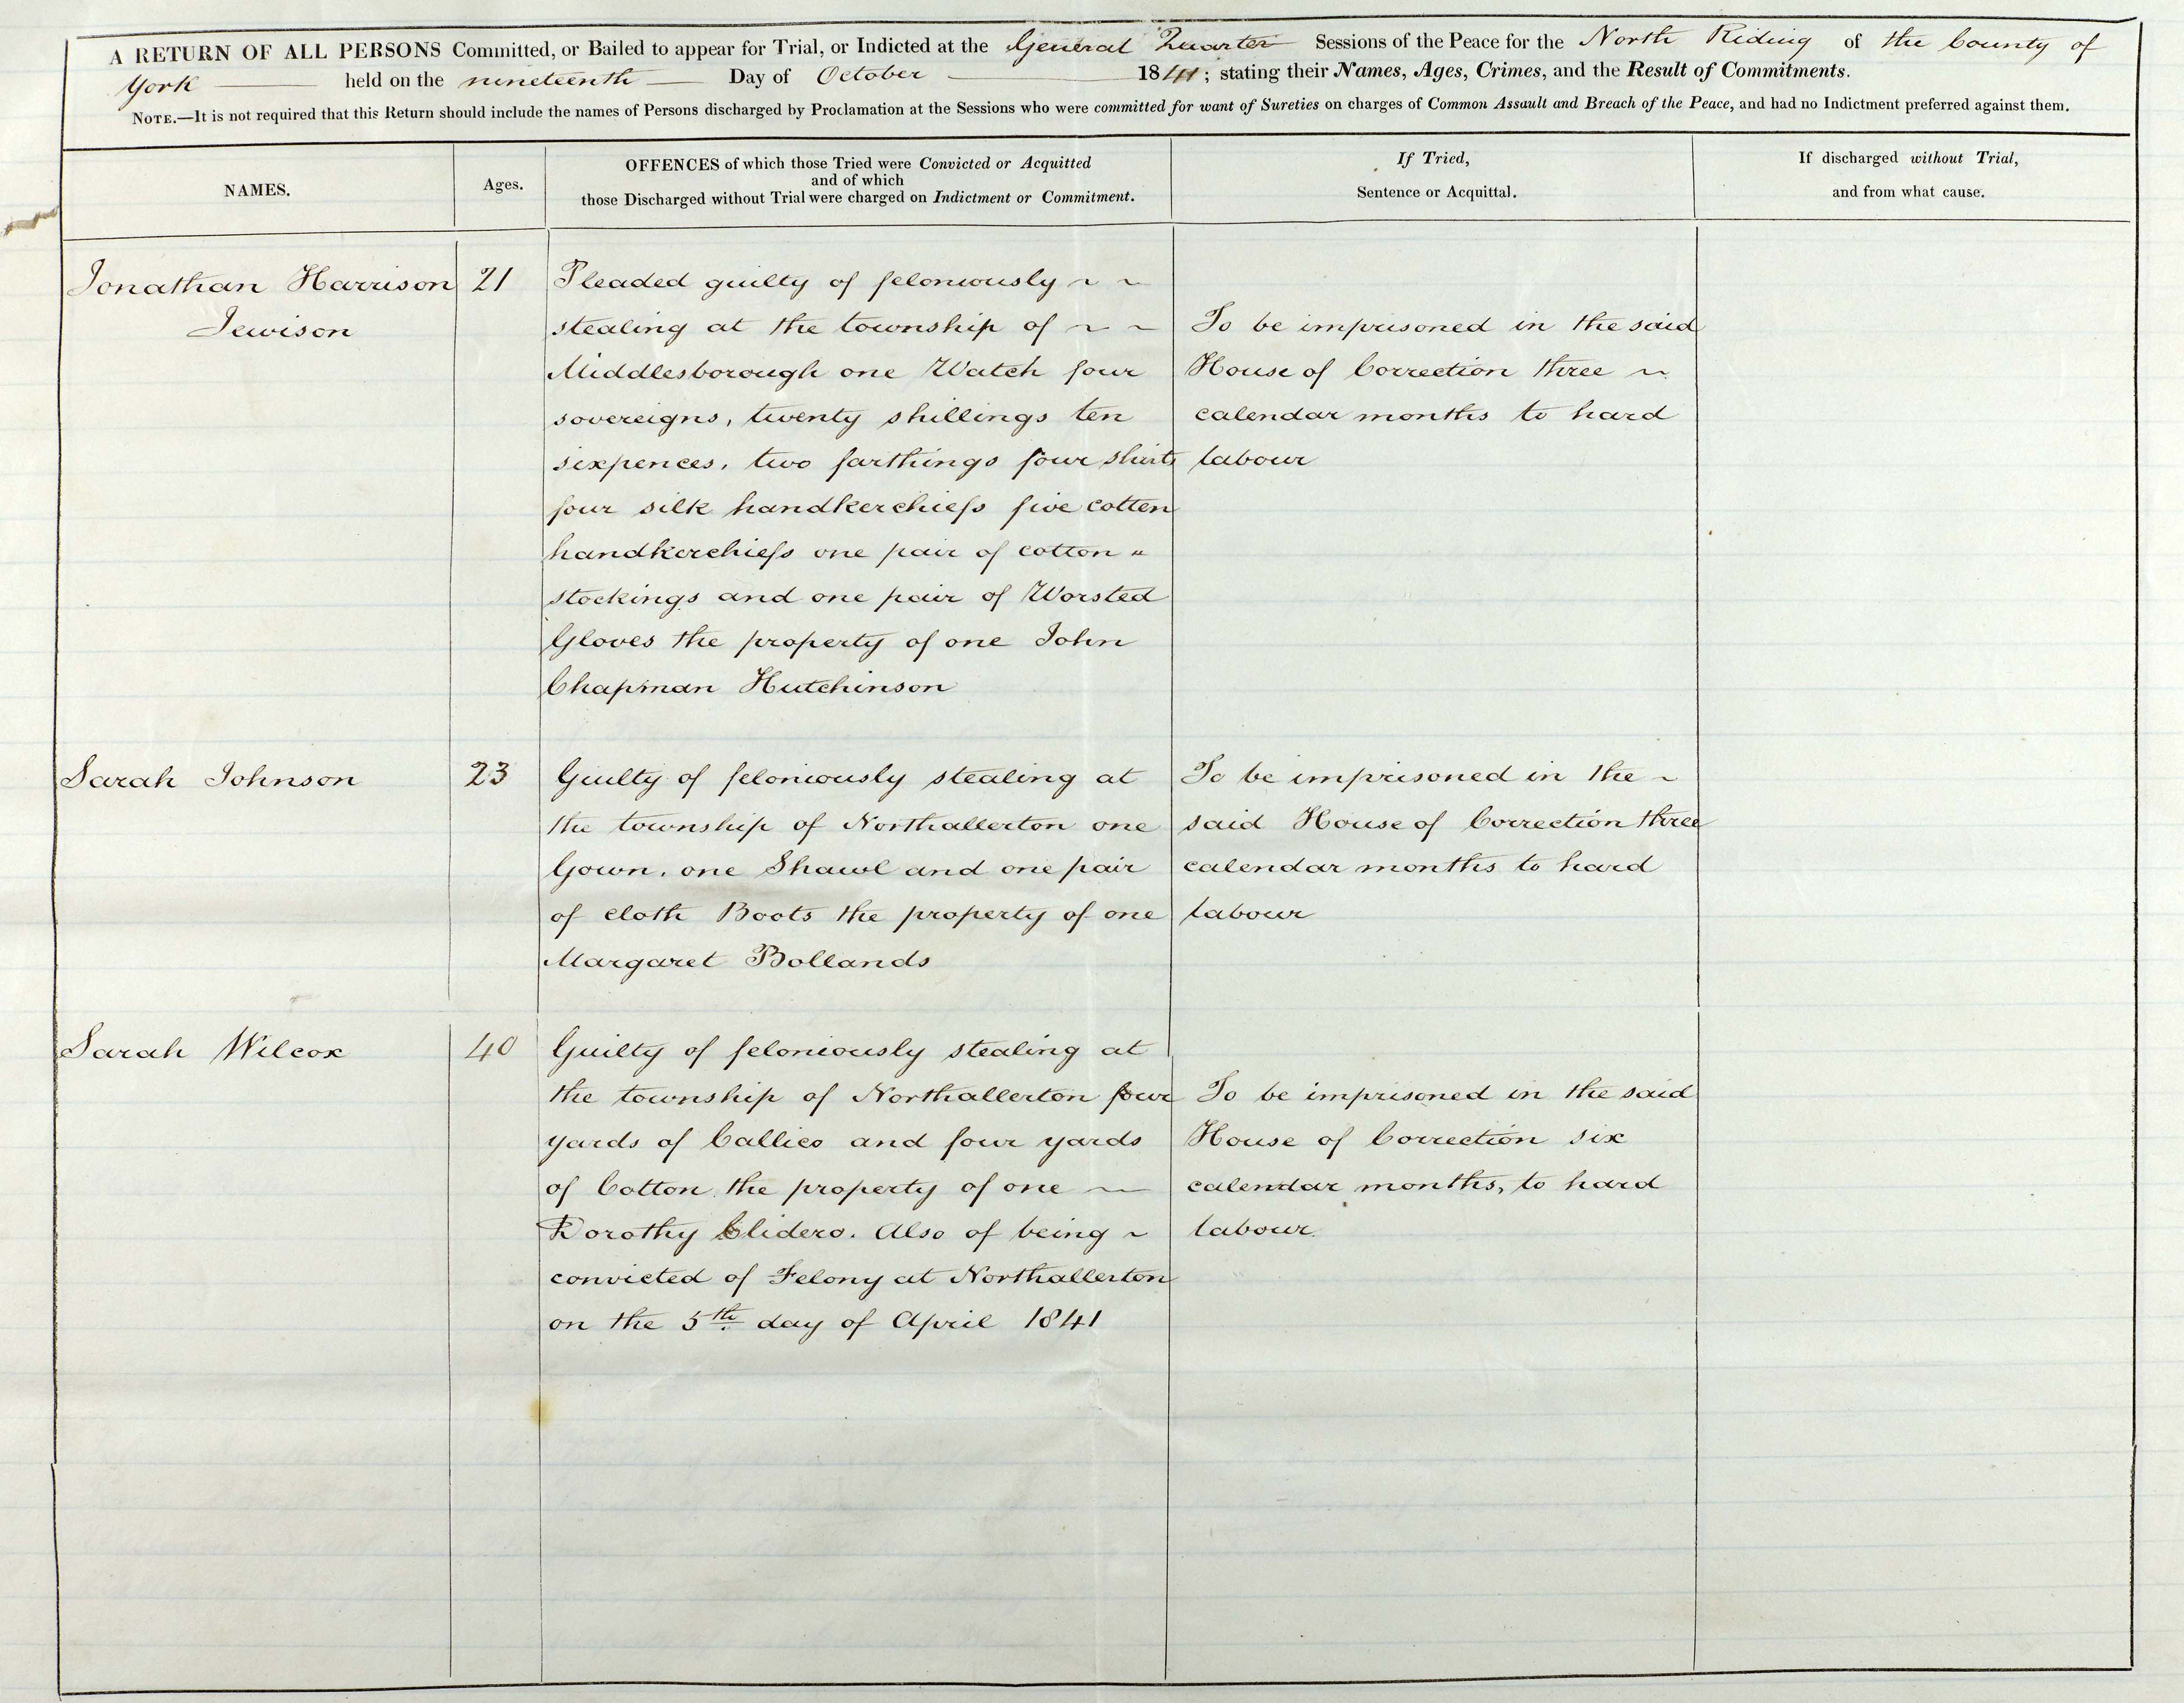 A RETURN OF ALL PERSONS Committed, or Bailed to appear for Trial, or Indicted at the General Quarter Sessions of the Peace for the North Riding of the County of
York held on the nineteenth Day of October 1841; stating their Names, Ages, Crimes, and the Result of Commitments.
NOTE.—It is not required that this Return should include the names of Persons discharged by Proclamation at the Sessions who were committed for want of Sureties on charges of Common Assault and Breach of the Peace, and had no Indictment preferred against them.
NAMES.
Ages.
OFFENCES of which those Tried were Convicted or Acquitted
and of which
those Discharged without Trial were charged on Indictment or Commitment.
If Tried,
Sentence or Acquittal.
If discharged without Trial,
and from what cause.
Jonathan Harrison
Jewison
21
Pleaded guilty of feloniously ~ ~
stealing at the township of ~ ~
Middlesborough one Watch four
sovereigns, twenty shillings ten
sixpences, two farthings four shirts
four silk handkerchiefs five cotten
handkerchiefs one pair of cotton "
stockings and one pair of Worsted
Gloves the property of one John
Chapman Hutchinson
To be imprisoned in the said
House of Correction three ~
calendar months to hard
labour
Sarah Johnson
23
Guilty of feloniously stealing at
the township of Northallerton one
Gown, one Shawl and one pair
of cloth Boots the property of one
Margaret Bollands
To be imprisoned in the ~
said House of Correction three
calendar months to hard
labour
Sarah Wilcox
40
Guilty of feloniously stealing at
the township of Northallerton four
yards of Callico and four yards
of Cotton the property of one ~
Dorothy Clidero. Also of being ~
convicted of Felony at Northallerton
on the 5th day of April 1841
To be imprisoned in the said
House of Correction six
calendar months, to hard
labour.